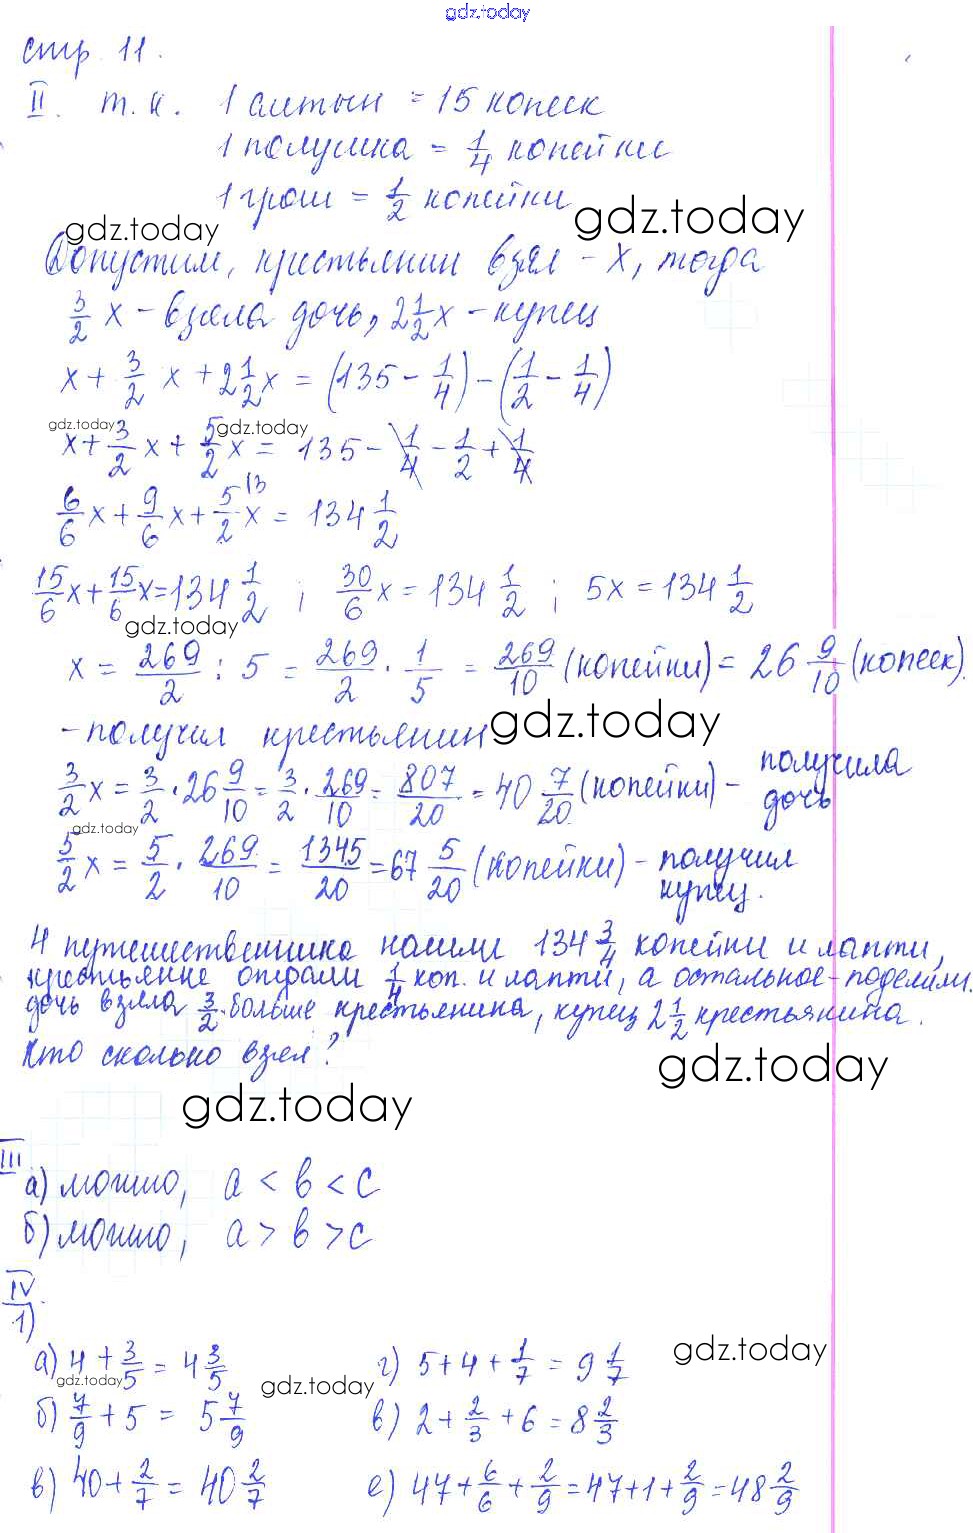 gdz.today
стр. 11.
II. т.к. 1 алтын = 15 копеек
1 полушка = 1/4 копейки
1 грош = 1/2 копейки
gdz.today gdz.today
Допустим, крестьянин взял - x, тогда
3/2 x - взяла дочь, 2 1/2 x - купец
x + 3/2 x + 2 1/2 x = (135 - 1/4) - (1/2 - 1/4)
gdz.today gdz.today
x + 3/2 x + 5/2 x = 135 - 1/4 - 1/2 + 1/4
6/6 x + 9/6 x + 5/2 x (3 = 134 1/2
15/6 x + 15/6 x = 134 1/2 ; 30/6 x = 134 1/2 ; 5x = 134 1/2
gdz.today
x = 269/2 : 5 = 269/2 · 1/5 = 269/10 (копейки) = 26 9/10 (копеек).
- получил крестьянин gdz.today
3/2 x = 3/2 · 26 9/10 = 3/2 · 269/10 = 807/20 = 40 7/20 (копейки) - получила дочь
gdz.today
5/2 x = 5/2 · 269/10 = 1345/20 = 67 5/20 (копейки) - получил купец.
4 путешественника нашли 134 3/4 копейки и лапти,
крестьяне отдали 1/4 коп. и лапти, а остальное - поделили.
дочь взяла 3/2 больше крестьянина, купец 2 1/2 крестьянина.
Кто сколько взял?
gdz.today
gdz.today
III
а) можно, a < b < c
б) можно, a > b > c
IV
1)
а) 4 + 3/5 = 4 3/5 г) 5 + 4 + 1/7 = 9 1/7
gdz.today gdz.today gdz.today
б) 7/9 + 5 = 5 7/9 в) 2 + 2/3 + 6 = 8 2/3
в) 40 + 2/7 = 40 2/7 е) 47 + 6/6 + 2/9 = 47 + 1 + 2/9 = 48 2/9